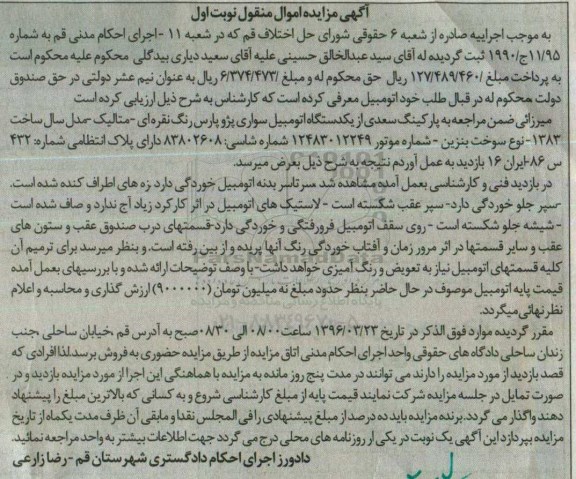 آگهی مزایده اموال منقول نوبت اول
به موجب اجراییه صادره از شعبه ۶ حقوقی شورای حل اختلاف قم که در شعبه ۱۱ -اجرای احکام مدنی قم به شماره
۱۱/۹۵ج/۱۹۹۰ ثبت گردیده له آقای سید عبدالخالق حسینی علیه آقای سعید دیاری بیدگلی محکوم علیه محکوم است
به پرداخت مبلغ /۱۲۷/۴۸۹/۴۶۰ ریال حق محکوم له و مبلغ /۶/۳۷۴/۴۷۳ ریال به عنوان نیم عشر دولتی در حق صندوق
دولت محکوم له در قبال طلب خود اتومبیل معرفی کرده است که کارشناس به شرح ذیل ارزیابی کرده است
میرزائی ضمن مراجعه به پارکینگ سعدی از یکدستگاه اتومبیل سواری پژو پارس رنگ نقره ای -متالیک-مدل سال ساخت
۱۳۸۳-نوع سوخت بنزین - شماره موتور ۱۲۴۸۳۰۱۲۲۴۹ شماره شاسی: ۸۳۸۰۲۶۰۸ دارای پلاک انتظامی شماره: ۴۳۲
س ۸۶-ایران ۱۶ بازدید به عمل آوردم نتیجه به شرح ذیل بعرض میرسد.
در بازدید فنی و کارشناسی بعمل آمده مشاهده شد سرتاسر بدنه اتومبیل خوردگی دارد. زه های اطراف کنده شده است.
-سپر جلو خوردگی دارد-سپر عقب شکسته است - لاستیک های اتومبیل در اثر کارکرد زیاد آج ندارد و صاف شده است
- شیشه جلو شکسته است - روی سقف اتومبیل فرورفتگی و خوردگی دارد-قسمتهای درب صندوق عقب و ستون های
عقب و سایر قسمتها در اثر مرور زمان و آفتاب خوردگی رنگ آنها پریده و از بین رفته است. و بنظر میرسد برای ترمیم آن
کلیه قسمتهای اتومبیل نیاز به تعویض و رنگ آمیزی خواهد داشت-با وصف توضیحات ارائه شده و با بررسیهای بعمل آمده
قیمت پایه اتومبیل موصوف در حال حاضر بنظر حدود مبلغ نه میلیون تومان (۹۰۰۰۰۰۰) ارزش گذاری و محاسبه و اعلام
نظر نهائی میگردد.
مقرر گردیده موارد فوق الذکر در تاریخ ۱۳۹۶/۰۳/۲۳ ساعت ۰۸/۰۰ الی ۰۸/۳۰صبح به آدرس قم ،خیابان ساحلی ،جنب
زندان ساحلی دادگاه های حقوقی واحد اجرای احکام مدنی اتاق مزایده از طریق مزایده حضوری به فروش برسد.لذا افرادی که
قصد بازدید از مورد مزایده را دارند می توانند در مدت پنج روز مانده به مزایده با هماهنگی این اجرا از مورد مزایده بازدید و در
صورت تمایل در جلسه مزایده شرکت نمایند قیمت پایه از مبلغ کارشناسی شروع و به کسانی که بالاترین مبلغ را پیشنهاد
دهند واگذار می گردد. برنده مزایده باید ده درصد از مبلغ پیشنهادی را فی المجلس نقدا و مابقی آن ظرف مدت یکماه از تاریخ
مزایده بپردازد این آگهی یک نوبت در یکی از روزنامه های محلی درج می گردد جهت اطلاعات بیشتر به واحد مراجعه نمائید.
دادورز اجرای احکام دادگستری شهرستان قم -رضا زارعی